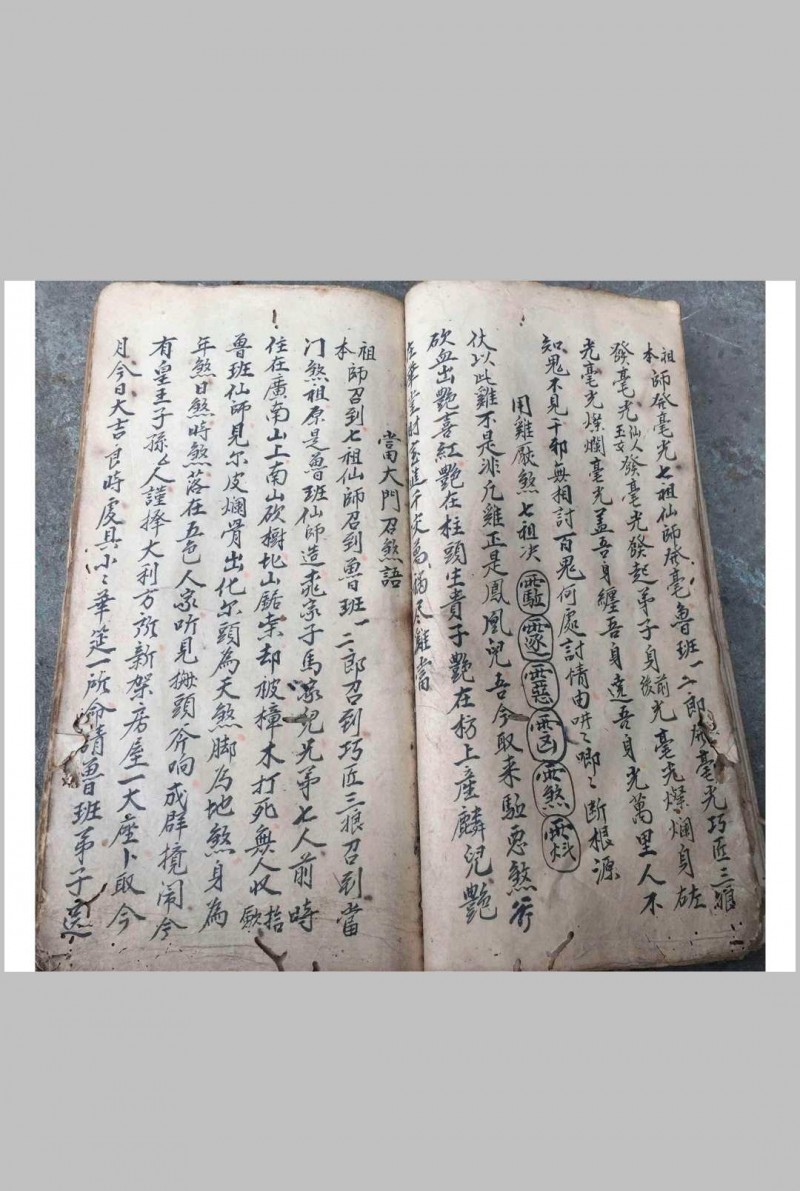 本祖師發毫光七祖仙師發毫魯班一二郎發毫光巧匠三娘
發毫光仙人玉女發毫光發起弟子身前後光毫光燦爛身左
光毫光燦爛毫光蓋吾身纏吾身遶吾身光萬里人不
知鬼不見千邪無相討百鬼何處討情由吽〻唧〻断根源
用雞厭煞七祖决
伏以此雞不是非凡雞正是鳳凰兒吾今取来驅惡煞
砍血出艶喜紅艶在柱頭生貴子艶在枋上産麟兒艶
當大門召煞語
本祖師召到七祖仙師召到魯班一二郎召到巧匠三娘召到當
门煞祖原是魯班仙師造乖家子馬家兒兄弟七人前時
住在廣南山上南山砍樹北山鋸柴却被撞木打死無人収拾
魯班仙師見尔皮爛骨出化尔頭為天煞脚為地煞身為
年煞日煞時煞落在五邑人家听見拇頭斧响成群搅闹今
有皇王子孫〻人謹擇大利方所新架房屋一大座卜取今
月今日大吉良時虔具小〻華筵一所命請魯班弟子送